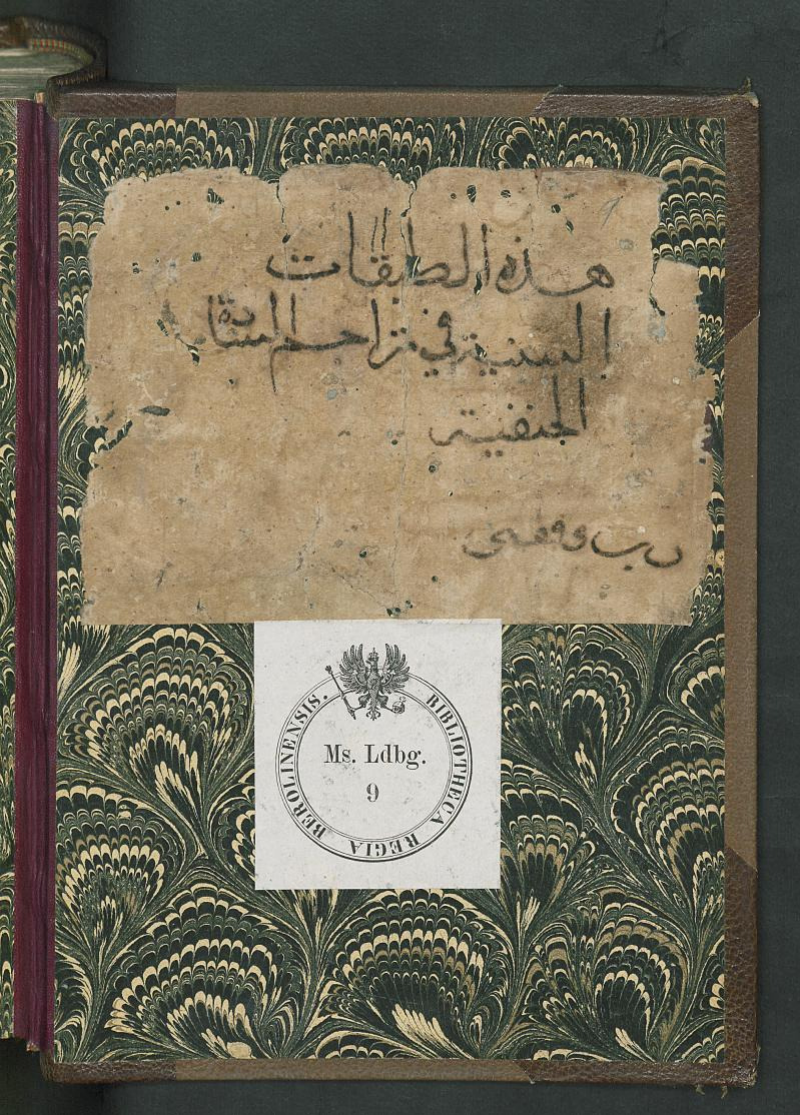 هذه الطبقات
السنية في تراجم السادة
الحنفية
BIBLIOTHECA REGIA BEROLINENSIS.
Ms. Ldbg.
9